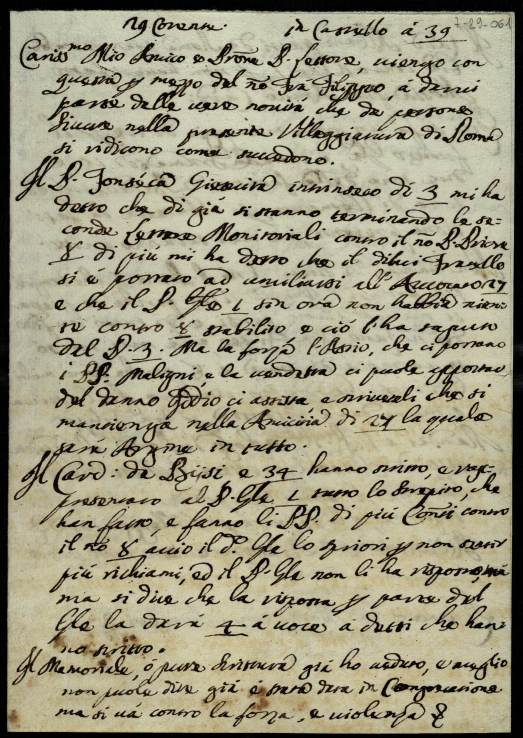 29 Corente. in Castello á 39
7-29-061
Cariss.mo Mio Amico e Prône P. Lettore, viengo con
questa p mezzo del ño Fra Filippo, a darvi
parte delle vere novitá che da persone
sicure nella presente Villeggiatura di Roma
si ridicono come succedono.
Il P. Fonseca Giesuita intrinseco di 3 mi ha
detto che di giá si stanno terminando le se-
conde Lettere Monitoriali contro il ño P. Priore
8 di piu mi ha detto che il dilui Fratello
si é portato ad umiliarsi all' 27
e che il P. Gle 1 sin ora non habbia nien-
te contro 8 stabilito e ció l'ha saputo
dal P. 3. Ma la forza l'Astio, che ci portano
i PP. Maligni e la vendetta ci puole apportar
del danno Iddio ci assista e che si
mantienga nella Amicizia di 27 la quale
sará Argine in tutto.
Il Card: da Bissi e 34 hanno scritto, e rap-
presentato al P. Gle 1 tutto lo Strepito, che
han fatto, e fanno li PP. di piú Conti contro
il ño 8 accio il d.o Gle lo p non sentir
piú richiami, ed il P. Gle non li ha risposto,
ma si dice che la risposta p parte del
Gle la dará 4 á voce á detti che han-
no scritto.
Il Memoriale, ó pure Scrittura giá ho veduto, e meglio
non puole dire giá é stata data in Congregazione
ma si vá contro la forza, e violenza 8